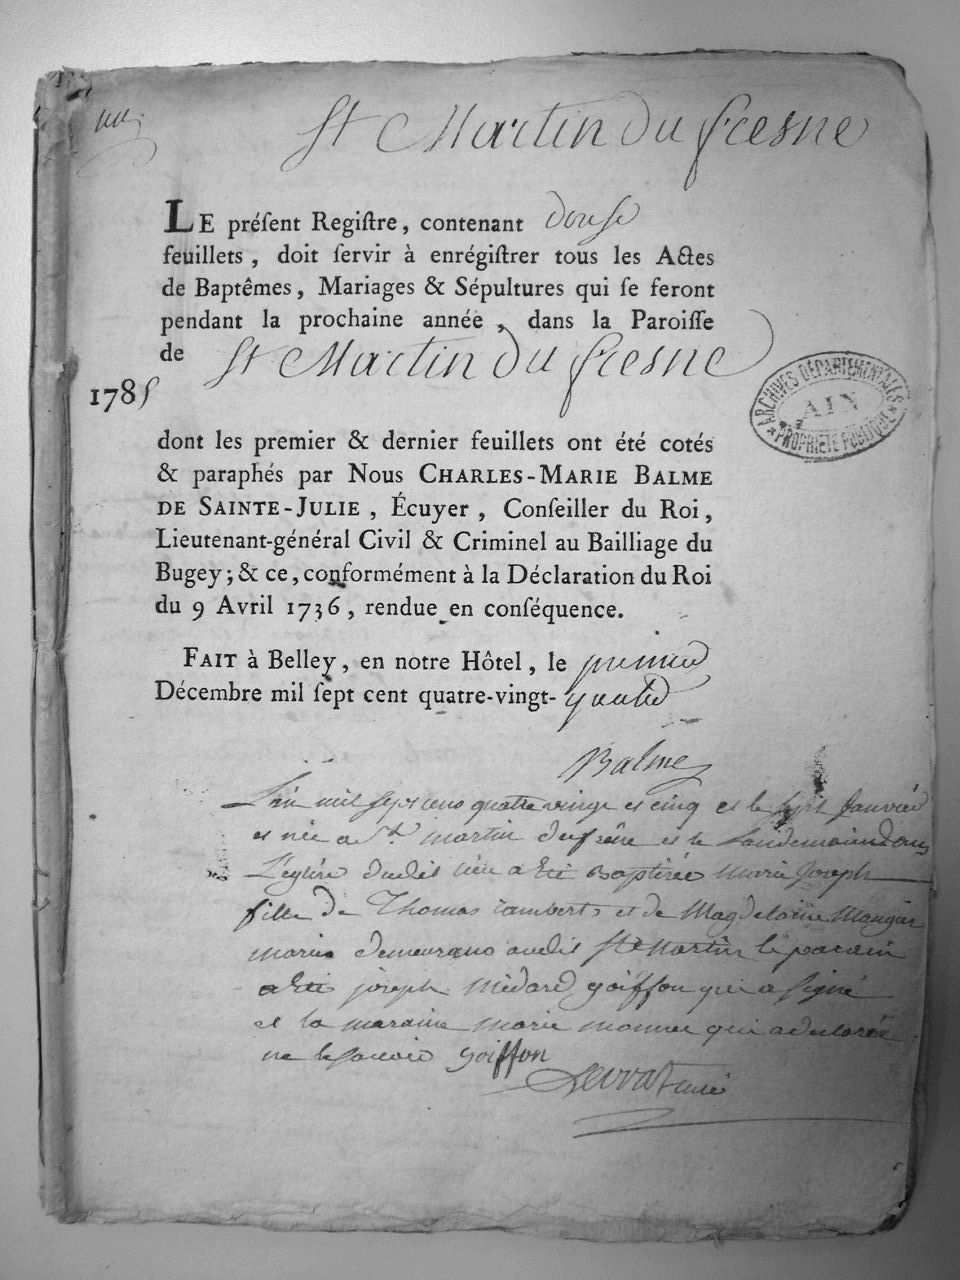 St Martin du fresne
LE préſent Regiſtre, contenant douſe
feuillets, doit ſervir à enrégiſtrer tous les Actes
de Baptêmes, Mariages & Sépultures qui ſe feront
pendant la prochaine année, dans la Paroiſſe
de St Martin du fresne
1785
ARCHIVES DÉPARTEMENTALES
AIN
* PROPRIÉTÉ PUBLIQUE *
dont les premier & dernier feuillets ont été cotés
& paraphés par Nous CHARLES-MARIE BALME
DE SAINTE-JULIE, Écuyer, Conſeiller du Roi,
Lieutenant-général Civil & Criminel au Bailliage du
Bugey; & ce, conformément à la Déclaration du Roi
du 9 Avril 1736, rendue en conſéquence.
FAIT à Belley, en notre Hôtel, le premier
Décembre mil ſept cent quatre-vingt-quatre
Balme
L'an mil sept cens quatre vingt et cinq et le sept Janvier
et née a St. martin du frêne et le landemain dans
L'eglise dudit lieu a été Baptisée marie Joseph
fille de Thomas Lambert et de Magdelaine
mariés demeurans audit St Martin le parain
a été joseph Médard goiffon qui a signé
et la maraine marie monnet qui a declarée
ne le savoir goiffon